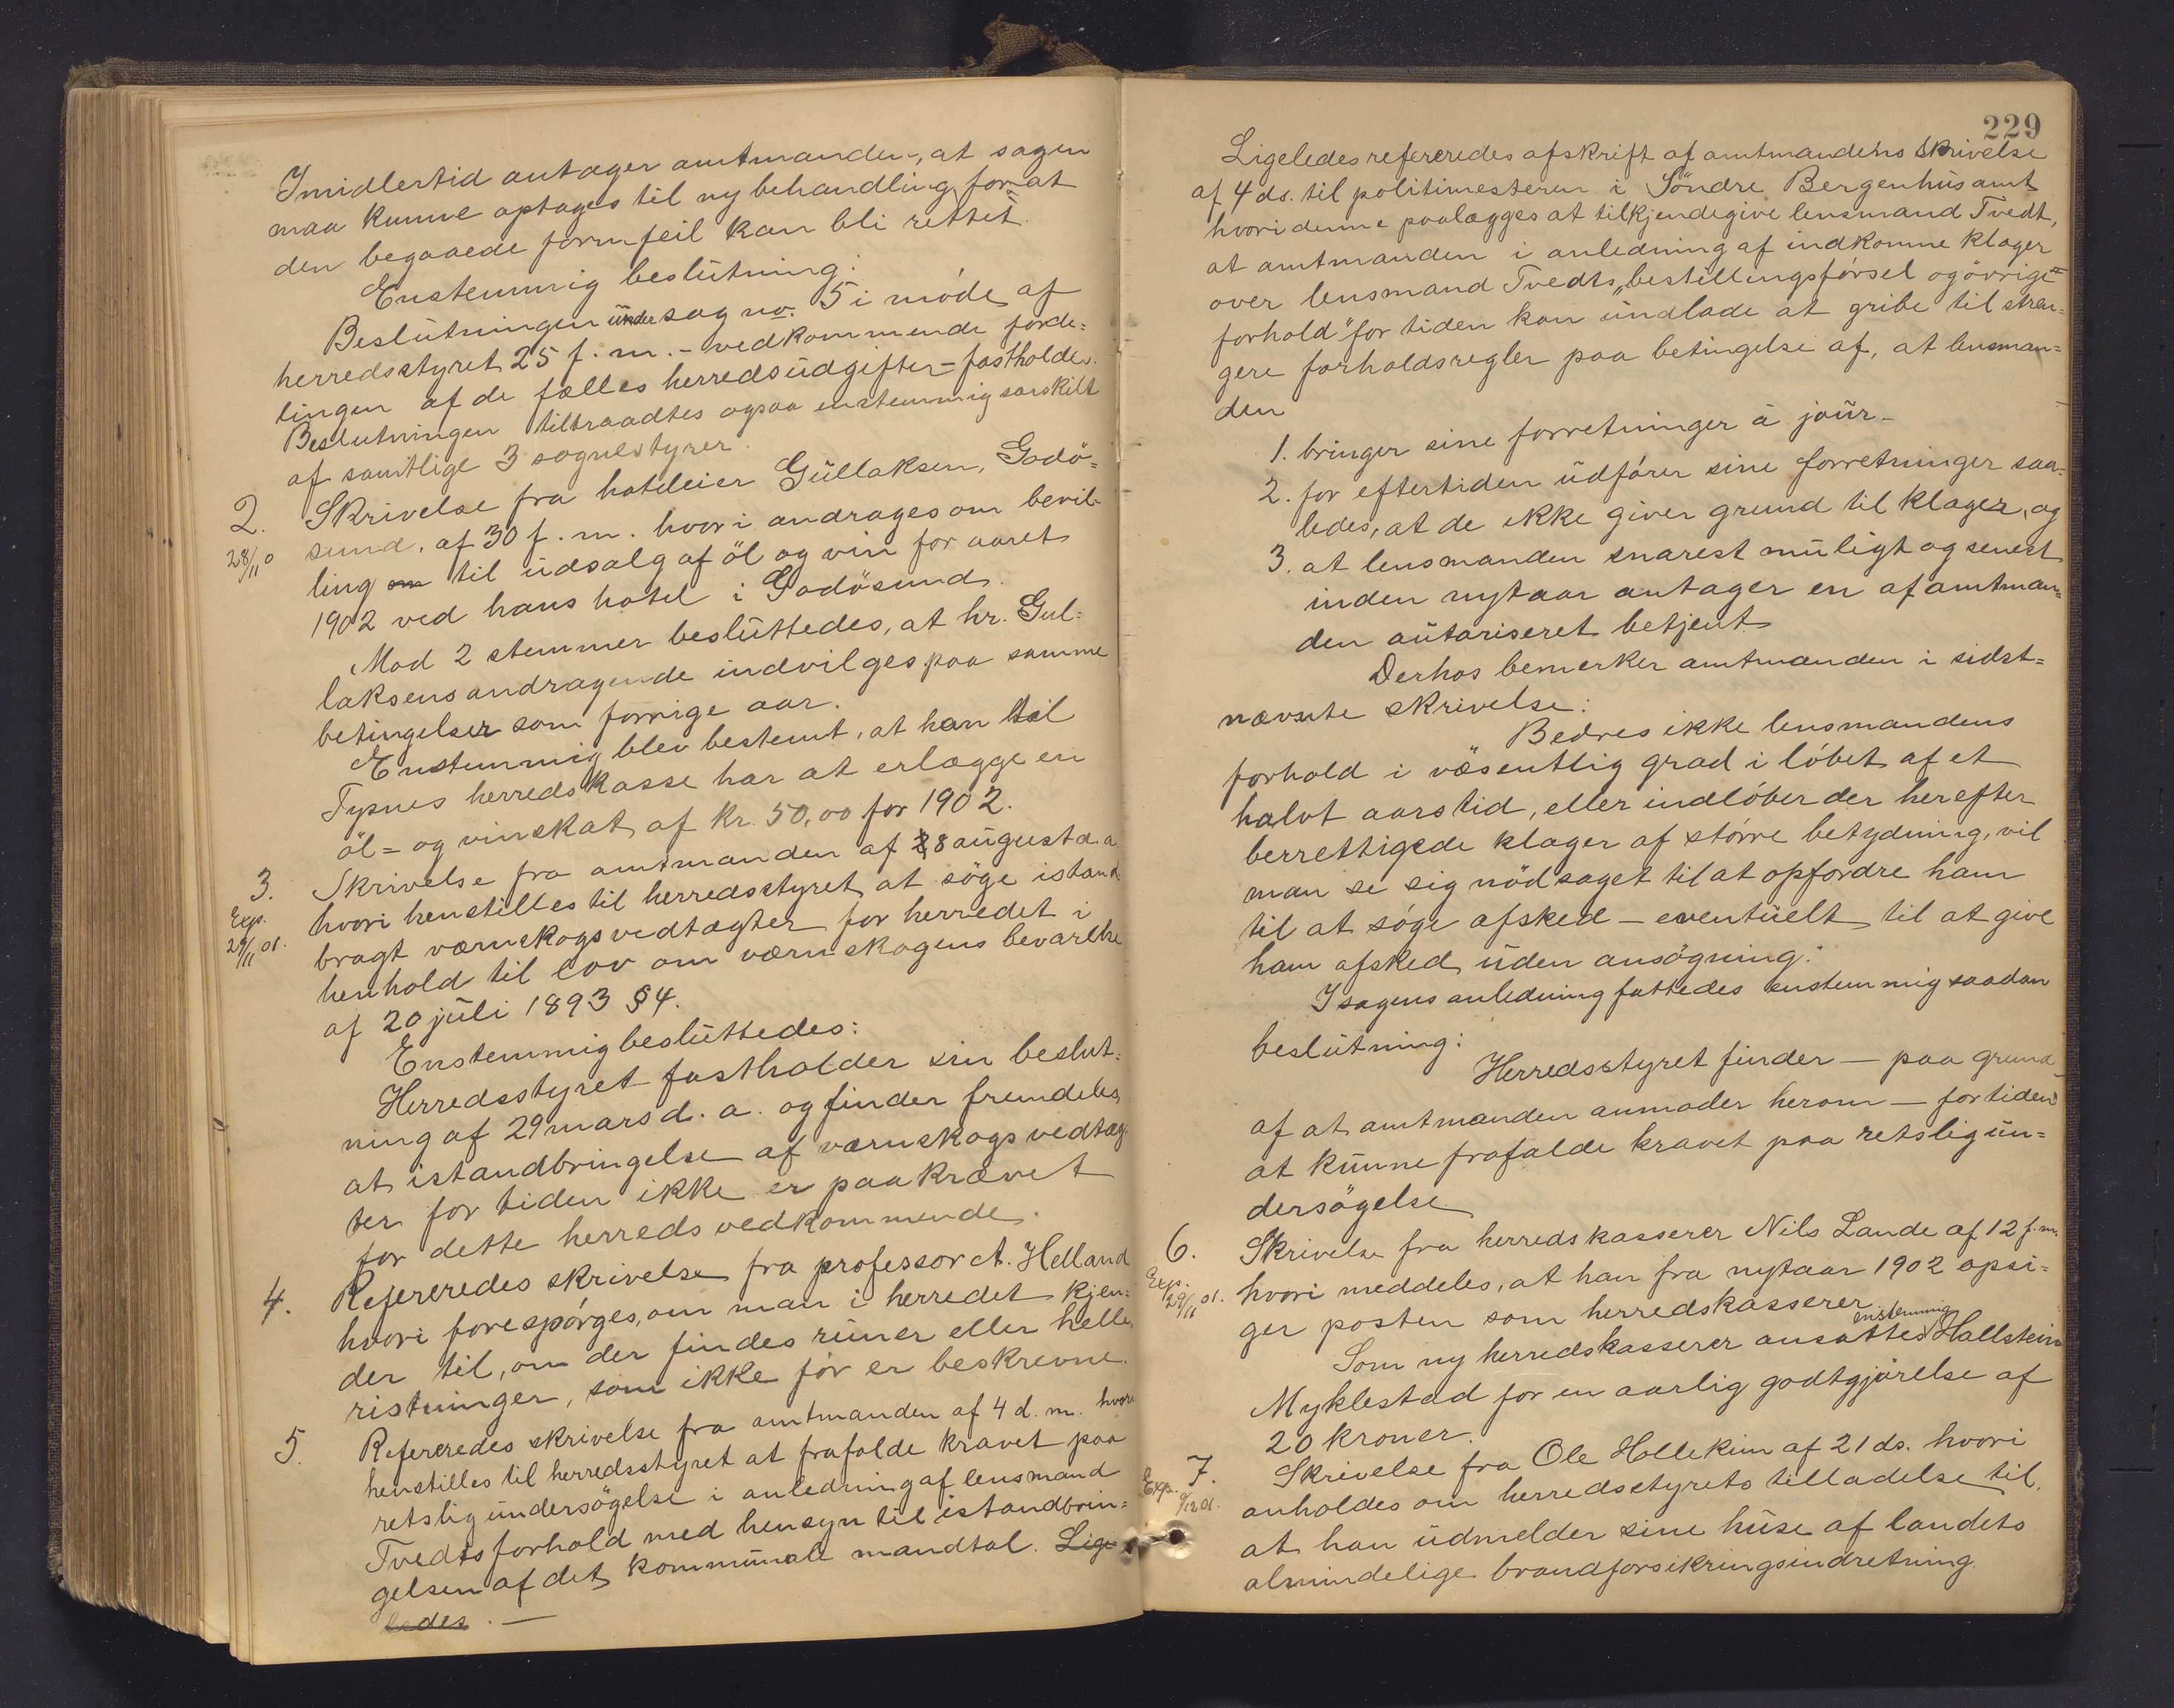 Imidlertid antager amtmanden, at sagen
maa kunne optages til ny behandling for at
den begaaede formfeil kan bli rettet.
Enstemmig beslutning:
Beslutningen under sag no. 5 i møde af
herredsstyret 25 f. m. - vedkommende forde=
lingen af de fælles herredsudgifter - fastholdes.
Beslutningen tiltraadtes ogsaa enstemmig særskilt
af samtlige 3 sognestyrer.
2.
28/11 0
Skrivelse fra hoteleier Gullaksen, Godø=
sund, af 30 f. m. hvori andrages om bevil=
ling om til udsalg af øl og vin for aaret
1902 ved hans hotel i Godøsund.
Mod 2 stemmer besluttedes, at hr. Gul=
laksens andragende indvilges paa samme
betingelser som forrige aar.
Enstemmig blev bestemt, at han til
Tysnes herredskasse har at erlægge en
øl= og vinskat af kr. 50,00 for 1902.
3.
Exp.
29/11 01.
Skrivelse fra amtmanden af 28 august d. a
hvori henstilles til herredsstyret at søge istand=
bragt værnskogsvedtægter for herredet i
henhold til lov om værnskogens bevarelse
af 20 juli 1893 § 4.
Enstemmig besluttedes:
Herredsstyret fastholder sin beslut=
ning af 29 mars d. a. og finder fremdeles,
at istandbringelse af værnskogsvedtæg=
ter for tiden ikke er paakrævet
for dette herreds vedkommende.
4.
Refereredes skrivelse fra professor A. Helland
hvori forespørges, om man i herredet kjen=
der til, om der findes runer eller helle=
ristninger, som ikke før er beskrevne.
5.
Refereredes skrivelse fra amtmanden af 4 d. m. hvori
henstilles til herredsstyret at frafalde kravet paa
retslig undersøgelse i anledning af lensmand
Tvedts forhold med hensyn til istandbrin=
gelsen af det kommunale mandtal. Lige
ledes. —
229
Ligeledes refereredes afskrift af amtmandens skrivelse
af 4 ds. til politimesteren i Søndre Bergenhus amt
hvori denne paalægges at tilkjendegive lensmand Tvedt,
at amtmanden i anledning af indkomne klager
over lensmand Tvedts „bestillingsførsel og øvrige
forhold" for tiden kan undlade at gribe til stren=
gere forholdsregler paa betingelse af, at lensman=
den
1. bringer sine forretninger à jour -
2. for eftertiden udfører sine forretninger saa=
ledes, at de ikke giver grund til klager, og
3. at lensmanden snarest muligt og senest
inden nytaar antager en af amtman=
den autoriseret betjent.
Derhos bemerker amtmanden i sidst=
nævnte skrivelse:
Bedres ikke lensmandens
forhold i væsentlig grad i løbet af et
halvt aars tid, eller indløber der herefter
berrettigede klager af større betydning, vil
man se sig nødsaget til at opfordre ham
til at søge afsked — eventuelt til at give
ham afsked uden ansøgning.
I sagens anledning fattedes enstemmig saadan
beslutning:
Herredsstyret finder — paa grund
af at amtmanden anmoder herom — for tiden
at kunne frafalde kravet paa retslig un=
dersøgelse
6.
Exp.
29/11 01.
Skrivelse fra herredskasserer Nils Lande af 12 f. m.
hvori meddeles, at han fra nytaar 1902 opsi=
ger posten som herredskasserer.
enstemmig
Som ny herredskasserer ansattes Hallstein
Myklestad for en aarlig godtgjørelse af
20 kroner.
7.
Exp.
/12 01.
Skrivelse fra Ole Hollekim af 21 ds. hvori
anholdes om herredsstyrets tilladelse til,
at han udmelder sine huse af landets
almindelige brandforsikringsindretning.